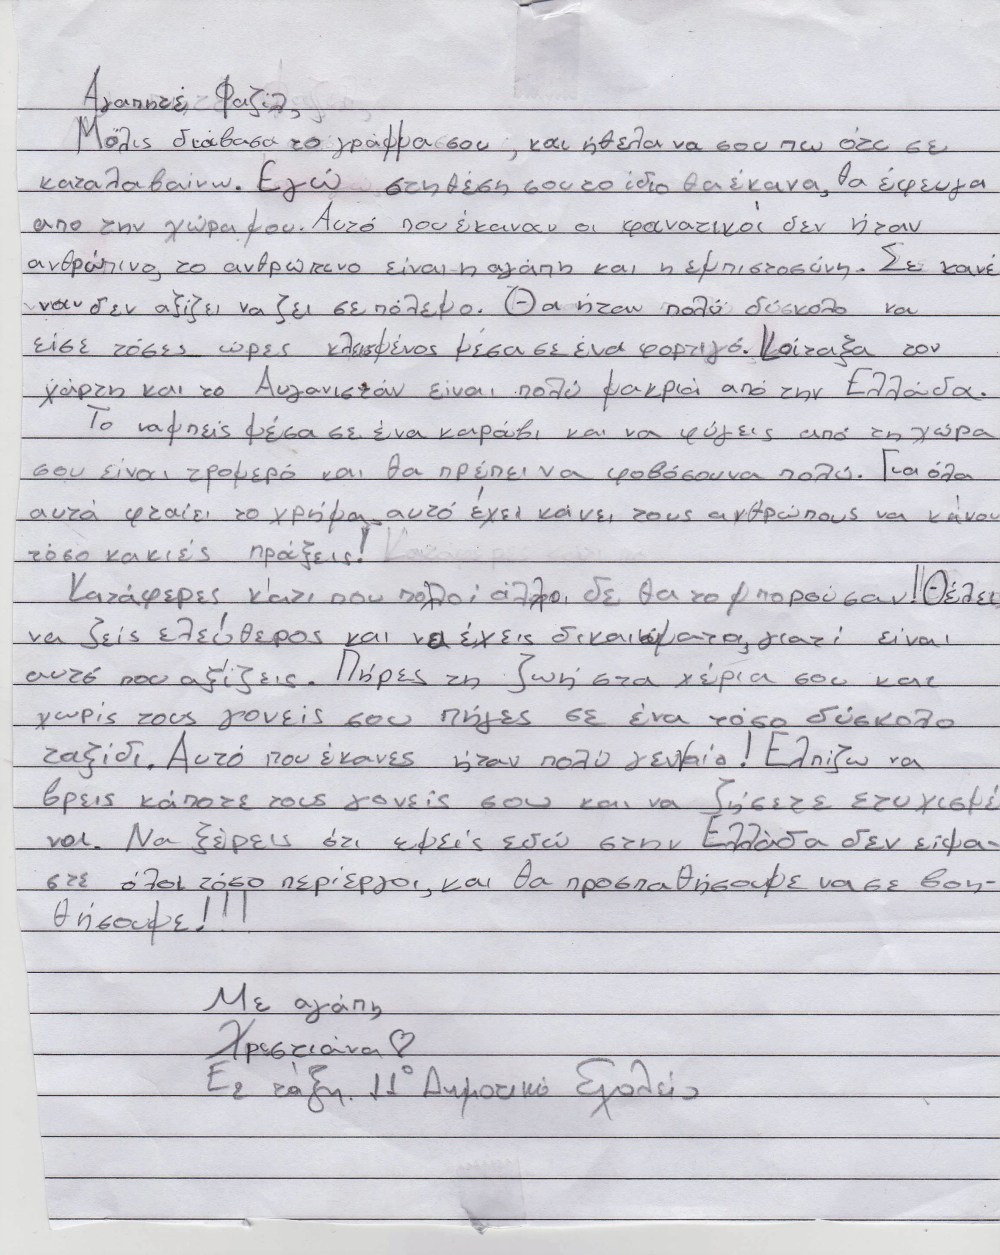 Αγαπητέ Φαζίλ,
Μόλις διάβασα το γράμμα σου, και ήθελα να σου πω ότι σε
καταλαβαίνω. Εγώ στη θέση σου το ίδιο θα έκανα, θα έφευγα
απο την χώρα μου. Αυτό που έκαναν οι φανατικοί δεν ήταν
ανθρώπινο, το ανθρώπινο είναι η αγάπη και η εμπιστοσύνη. Σε κανέ
ναν δεν αξίζει να ζει σε πόλεμο. Θα ήταν πολύ δύσκολο να
είσε τόσες ώρες κλεισμένος μέσα σε ένα φορτιγό. Κοίταξα τον
χάρτη και το Αυγανιστάν είναι πολύ μακριά από την Ελλάδα.
Το να μπείς μέσα σε ένα καράβι και να φύγεις από τη χώρα
σου είναι τρομερό και θα πρέπει να φοβόσουνα πολύ. Για όλα
αυτά φταίει το χρήμα αυτό έχει κάνει τους ανθρώπους να κάνουν
τόσο κακιές πράξεις!
Κατάφερες κάτι που πολοί άλλοι δε θα το μπορούσαν!! Θέλει
να ζείς ελεύθερος και να έχεις δικαιώματα, γιατί είναι
αυτό που αξίζεις. Πήρες τη ζωή στα χέρια σου και
χωρίς τους γονείς σου πήγες σε ένα τόσο δύσκολο
ταξίδι. Αυτό που έκανες ήταν πολύ γενναίο! Ελπίζω να
βρεις κάποτε τους γονείς σου και να ζήσετε ετυχισμέ
νοι. Να ξέρεις ότι εμείς εδώ στην Ελλάδα δεν είμα-
στε όλοι τόσο περίεργοι, και θα προσπαθήσουμε να σε βοη-
θήσουμε!!!
Με αγάπη
Χρεστιάνα ♡
Ε2 τάξη. 11° Δημοτικό Σχολείο